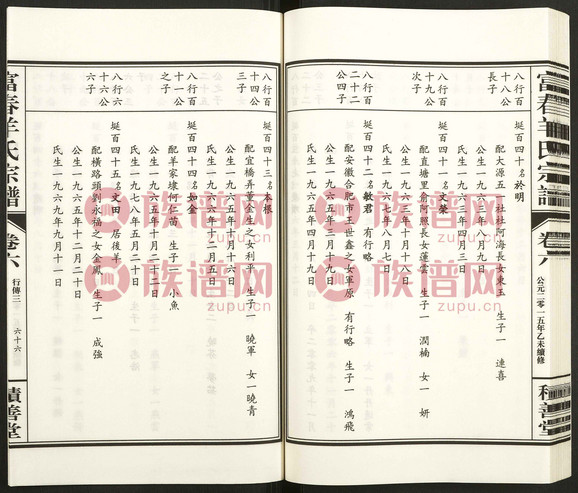 富春羊氏宗譜
卷六
公元二零一五年乙未續修
積善堂
八行百
十八公
長子
珽百四十名於明
配大源五一社社阿海長女東玉 生子一 連喜
公生一九六三年八月九日
氏生一九六九年四月三日
八行百
十九公
次子
珽百四十一名文榮
配直塘里俞阿照長女蓮雲 生子一 潤楠 女一 妍
公生一九六三年八月十八日
氏生一九六七年八月七日
八行百
二十二
公四子
珽百四十二名敏君 有行略
配安徽合肥市王世鑫之女軍原 有行略 生子一 鴻飛
公生一九六五年三月二十二日
氏生一九六四年四月十九日
八行百
十四公
三子
珽百四十三名本根
配宜橋弄董金生之女利羊 生子一 曉軍 女一曉青
公生一九六五年十月十六日
氏生一九六六年十二月五日
八行百
十一公
之子
珽百四十四名如金
配羊家埭何仁苗 生子一 小魚
公生一九六五年十月二十二日
氏生一九六六年二月二十日
八行六
十六公
六子
珽百四十五名文田 居後羊
配橫路頭劉永福之女金鳳 生子一 成強
公生一九六五年十二月二十日
氏生一九六九年九月十一日
富春羊氏宗譜
卷六
行傳三
六十六
積善堂
族谱网
zupu.cn
族谱网
zupu.cn
族谱网
zupu.cn
族谱网
zupu.cn